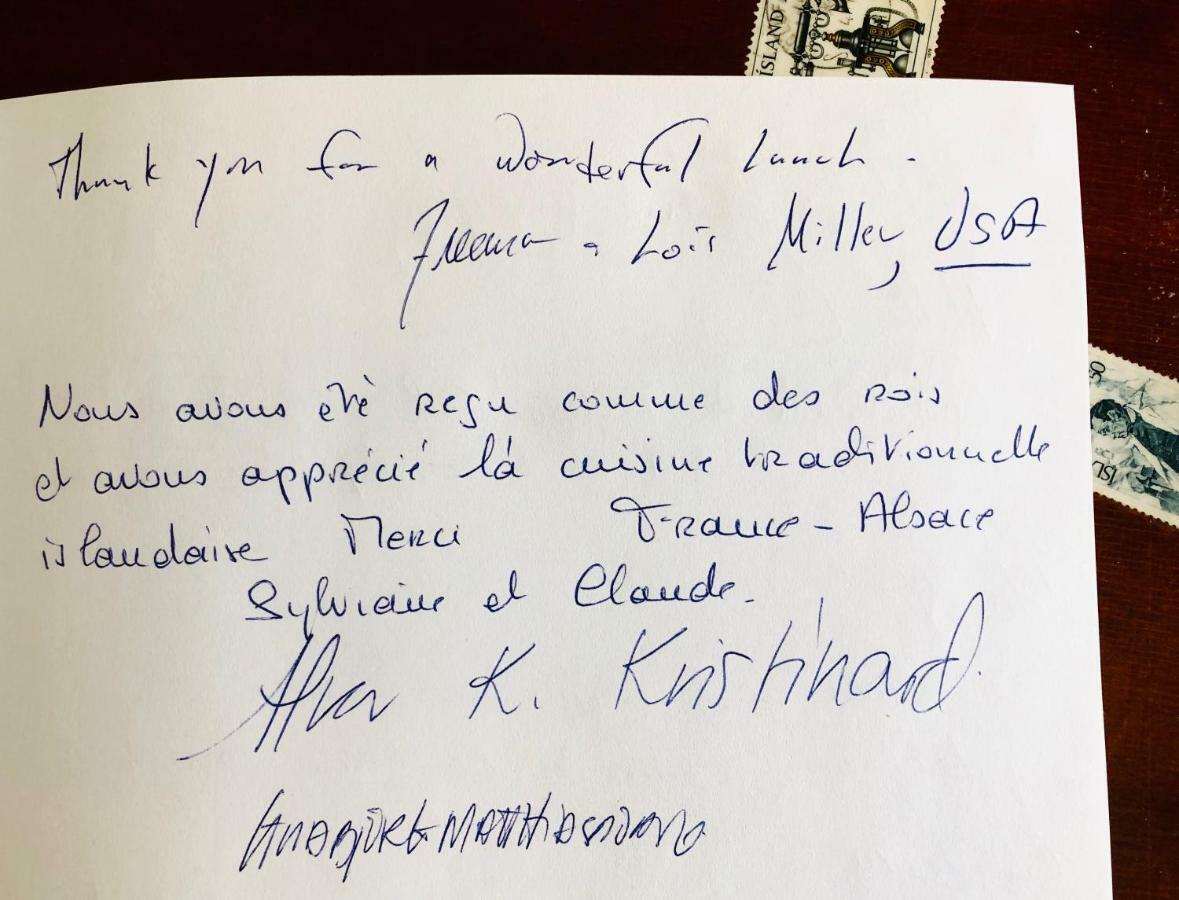 ÍSLAND
Thank you for a wonderful lunch.
Freeman & Lois Miller, USA
50
ISL
Nous avons été reçu comme des rois
et avons apprécié la cuisine traditionnelle
islandaise Merci France - Alsace
Sylviane et Claude.
K. Kristinard.